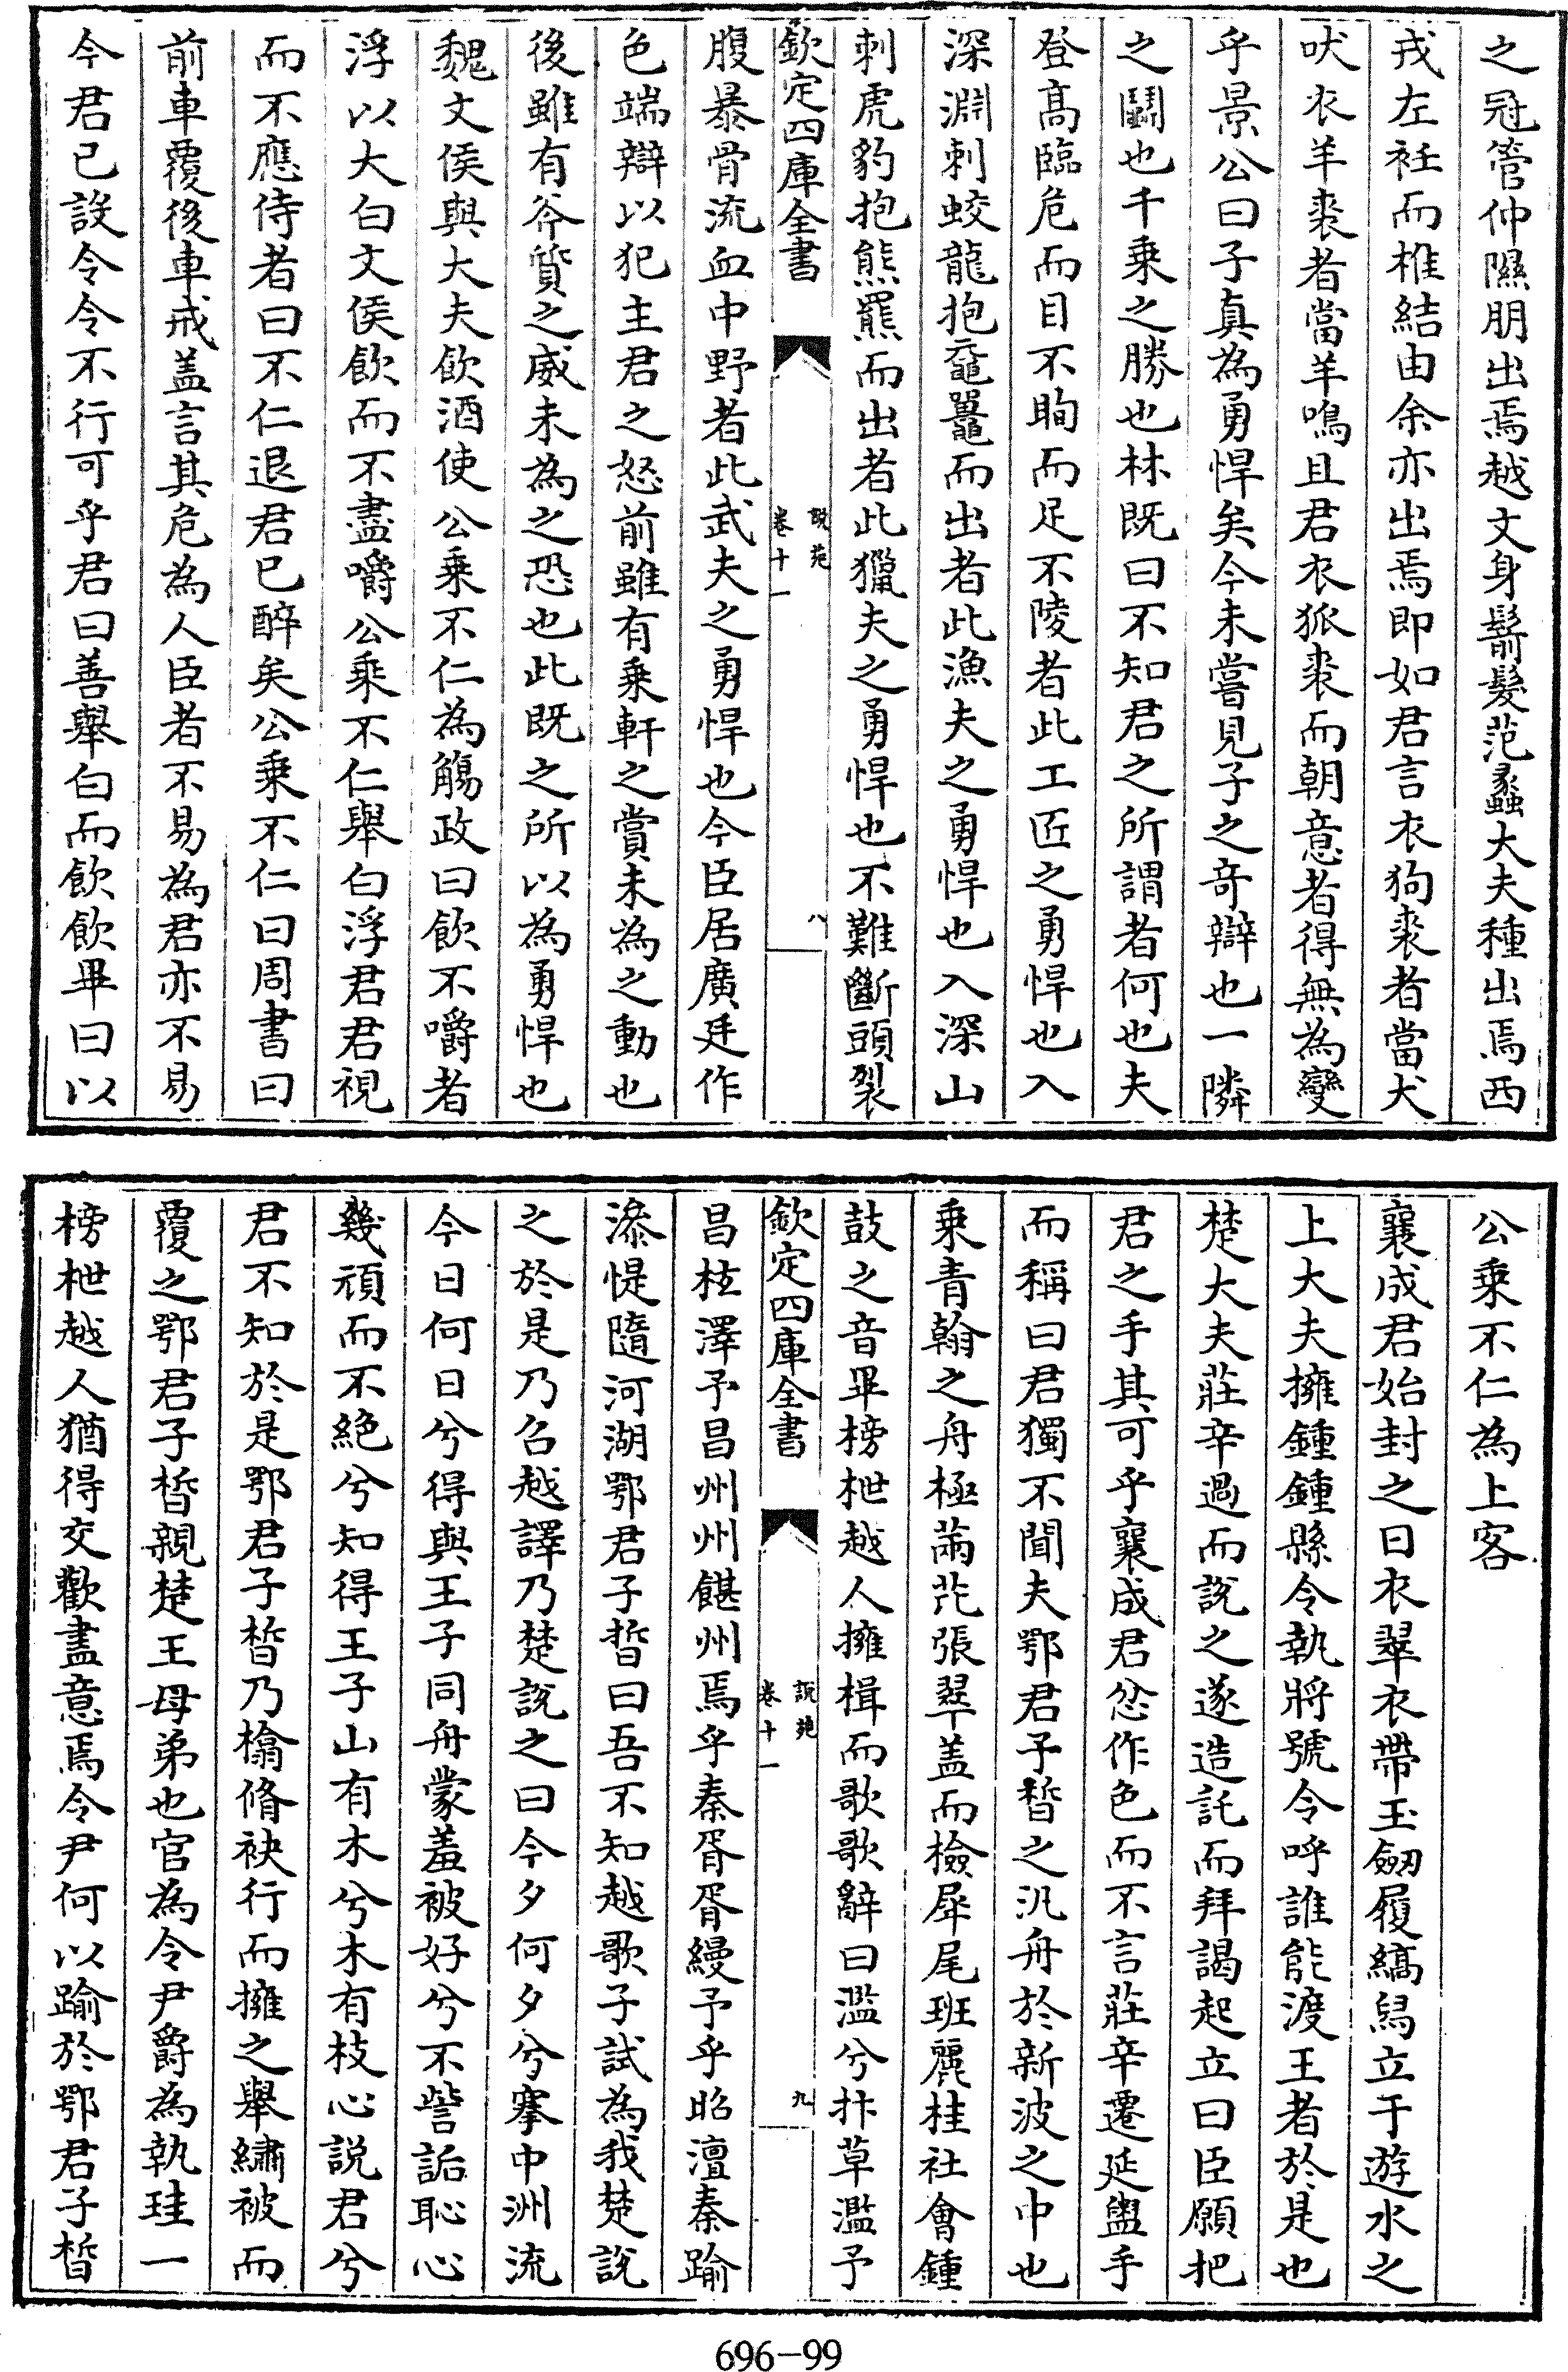 之冠管仲隰朋出焉越文身鬋髮范蠡大夫種出焉西
戎左衽而椎結由余亦出焉即如君言衣狗裘者當犬
吠衣羊裘者當羊鳴且君衣狐裘而朝意者得無為變
乎景公曰子真為勇悍矣今未嘗見子之奇辯也一隣
之鬭也千乗之勝也林既曰不知君之所謂者何也夫
登髙臨危而目不眴而足不陵者此工匠之勇悍也入
深淵刺蛟龍抱黿鼉而出者此漁夫之勇悍也入深山
刺虎豹抱熊羆而出者此獵夫之勇悍也不難斷頭裂
欽定四庫全書
說苑
卷十一
八
腹暴骨流血中野者此武夫之勇悍也今臣居廣廷作
色端辯以犯主君之怒前雖有乗軒之賞未為之動也
後雖有斧質之威未為之恐也此既之所以為勇悍也
魏文侯與大夫飲酒使公乗不仁為觴政曰飲不嚼者
浮以大白文侯飲而不盡嚼公乗不仁舉白浮君君視
而不應侍者曰不仁退君已醉矣公乗不仁曰周書曰
前車覆後車戒盖言其危為人臣者不易為君亦不易
今君已設令令不行可乎君曰善舉白而飲飲畢曰以
公乗不仁為上客
襄成君始封之日衣翠衣帶玉劒履縞舄立于遊水之
上大夫擁鍾鍾縣令執將號令呼誰能渡王者於是也
楚大夫莊辛過而說之遂造託而拜謁起立曰臣願把
君之手其可乎襄成君忿作色而不言莊辛遷延盥手
而稱曰君獨不聞夫鄂君子晳之汎舟於新波之中也
乗青翰之舟極䓣芘張翠盖而檢犀尾班麗袿社會鍾
鼓之音畢榜枻越人擁楫而歌歌辭曰濫兮抃草濫予
欽定四庫全書
說苑
卷十一
九
昌枑澤予昌州州䭘州焉乎秦胥胥縵予乎昭澶秦踰
滲惿隨河湖鄂君子晳曰吾不知越歌子試為我楚說
之於是乃召越譯乃楚說之曰今夕何夕兮搴中洲流
今日何日兮得與王子同舟蒙羞被好兮不訾詬恥心
幾頑而不絕兮知得王子山有木兮木有枝心説君兮
君不知於是鄂君子晳乃㩉脩袂行而擁之舉繡被而
覆之鄂君子晳親楚王母弟也官為令尹爵為執珪一
榜枻越人猶得交歡盡意焉令尹何以踰於鄂君子晳
696-99